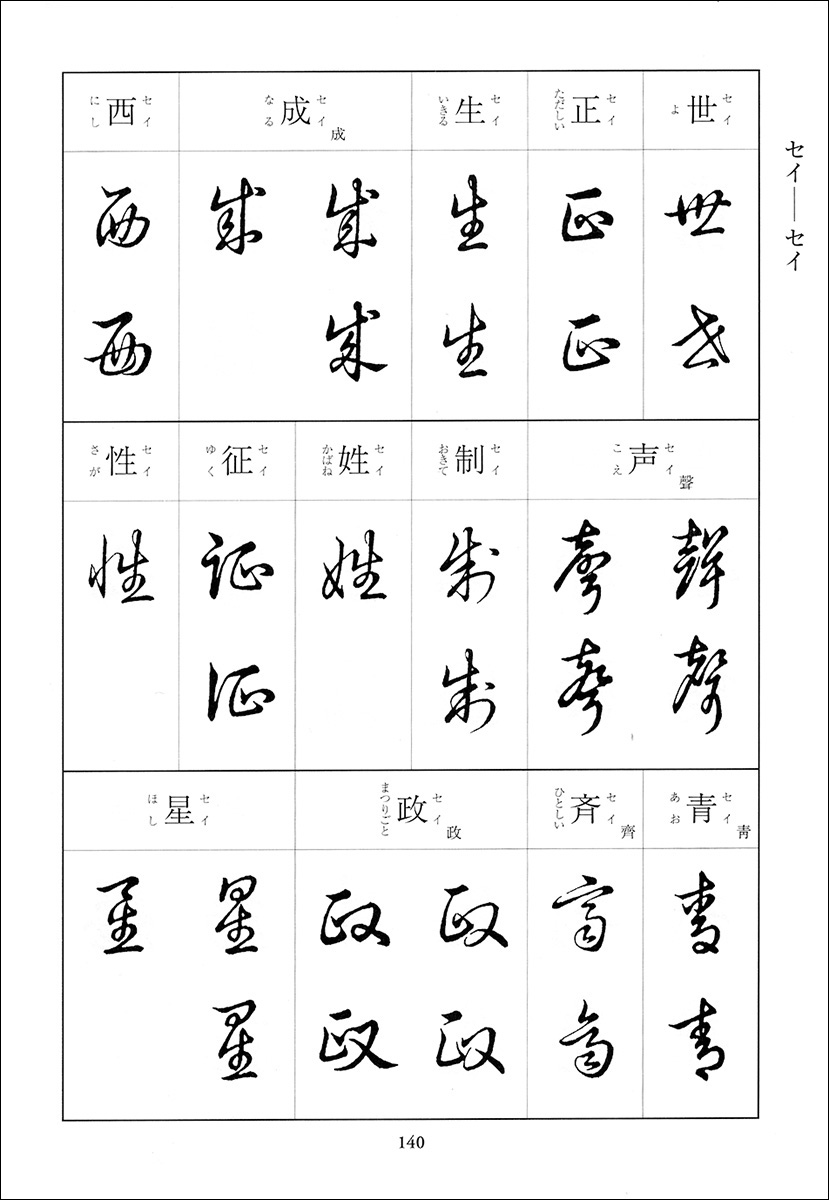 セイ―セイ
世 セイ よ
世
世
正 セイ ただしい
正
正
生 セイ いきる
生
生
成 セイ なる 成
成
成
成
西 セイ にし
西
西
声 セイ こえ 聲
聲
聲
聲
聲
制 セイ おきて
制
制
姓 セイ かばね
姓
征 セイ ゆく
征
征
性 セイ さが
性
青 セイ あお 靑
青
青
斉 セイ ひとしい 齊
齊
齊
政 セイ まつりごと 政
政
政
政
政
星 セイ ほし
星
星
星
140